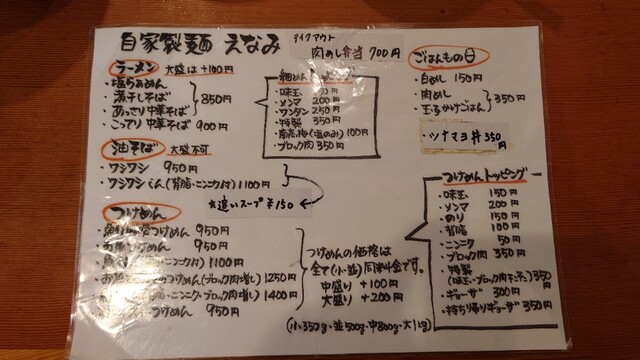 自家製麺 えなみ
テイクアウト
肉めし弁当 700円
ラーメン 大盛は+100円
・塩らあめん
・煮干しそば
・あっさり中華そば
850円
・こってり中華そば 900円
油そば 大盛不可
・ワシワシ 950円
・ワシワシくん(背脂・ニンニク付)1100円
※追いスープ ¥150
つけめん
つけめん 950円
つけめん 950円
ニンニク付)1100円
つけめん(ブロック肉増し)1250円
背脂・ニンニク・ブロック肉増し)1400円
つけめん 950円
つけめんの価格は
全て(小・並)同料金です。
中盛り +100円
大盛り +200円
(小・350g・並500g・中800g・大1kg)
トッピング
・味玉
・メンマ 200円
・ワンタン 250円
・特製 350円
(塩のみ)100円
・ブロック肉 350円
ごはんもの
・白めし 150円
・肉めし
・玉子かけごはん
350円
・ツナマヨ丼 350円
つけめんトッピング
・味玉 150円
・メンマ 200円
・のり 150円
・背脂 100円
・ニンニク 50円
・ブロック肉 350円
・特製
350円
・ギョーザ 300円
・持ち帰りギョーザ 350円